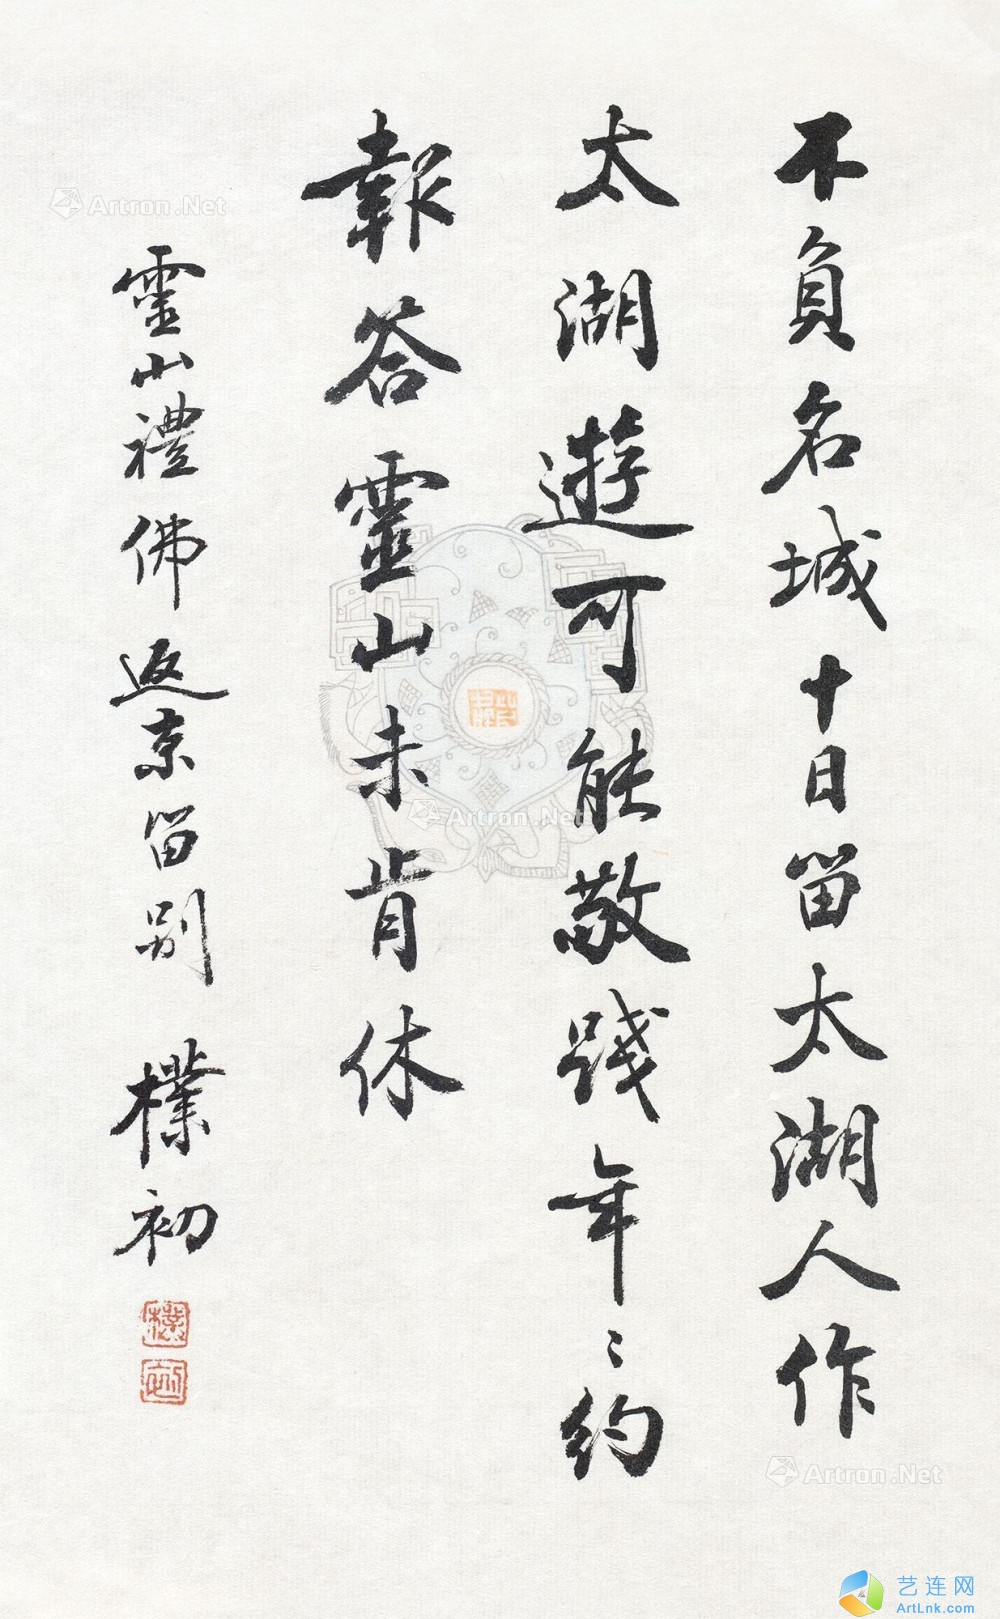 不負名城十日留太湖人作
太湖遊可能敬踐年〻約
報答靈山未肯休
靈山禮佛返京留別 樸初
樸
初
Artron.Net
Artron.Net
Artron.Net
艺连网
ArtLnk.com